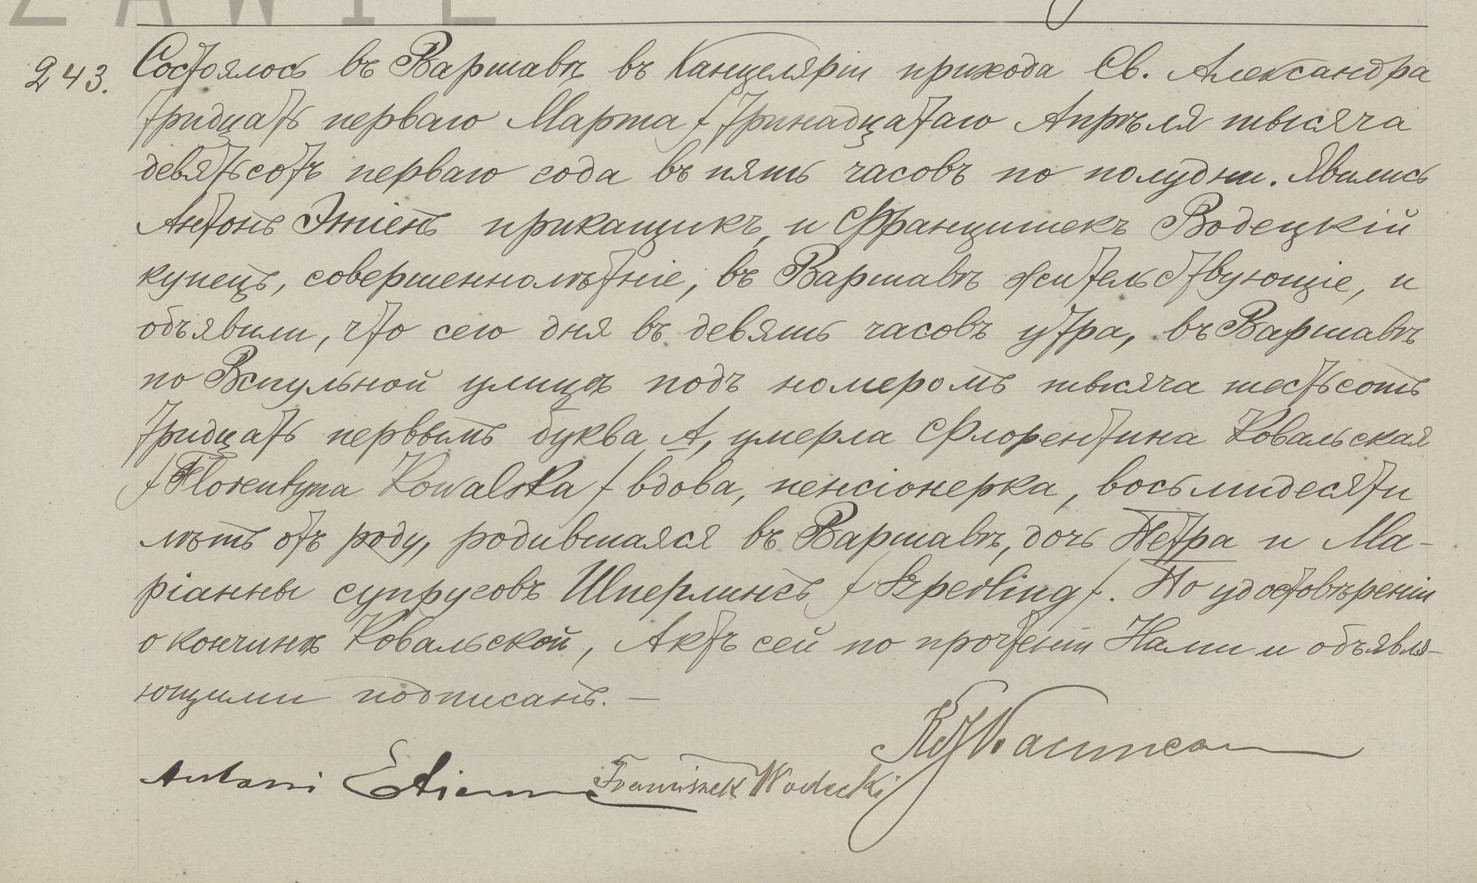 ZAWIE
243. Состоялось въ Варшавѣ въ Канцеляріи прихода Св. Александра
тридцать перваго Марта /тринадцатаго Апрѣля тысяча
девятьсотъ перваго года въ пять часовъ по полудни. Явились
Антонъ Этіенъ прикащикъ, и Францишекъ Водецкій
купецъ, совершеннолѣтніе, въ Варшавѣ жительствующіе, и
объявили, что сего дня въ девять часовъ утра, въ Варшавѣ
по Вспульной улицѣ подъ номеромъ тысяча шестьсотъ
тридцать первымъ буква А, умерла Флорентина Ковальская
/Florentyna Kowalska/ вдова, пенсіонерка, восьмидесяти
лѣтъ отъ роду, родившаяся въ Варшавѣ, дочь Петра и Ма-
ріанны супруговъ Шперлингъ /Szperling/. По удостовѣреніи
о кончинѣ Ковальской, Актъ сей по прочтеніи Нами и объявля-
ющими подписанъ. —
Antoni Etienne Franciszek Wodecki